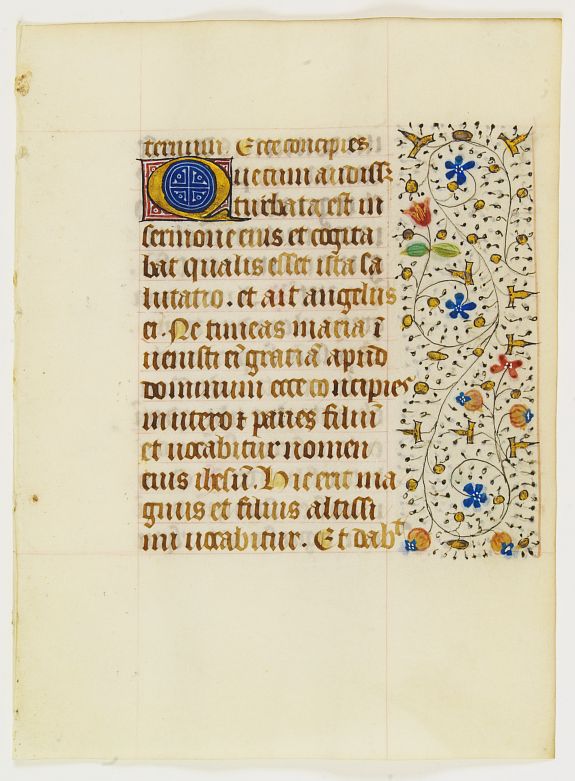 ternum. Ecce concipies.
Que cum audisset
turbata est in
sermone eius et cogita
bat qualis esset ista sa
lutatio. et ait angelus
ei. Ne timeas maria ī
uenisti eī graciā apud
dominum ecce concipies
in utero ⁊ paries filiū
et uocabitur nomen
eius ihesū. Hic erit ma
gnus et filius altissi
mi uocabitur. Et dabᵗ